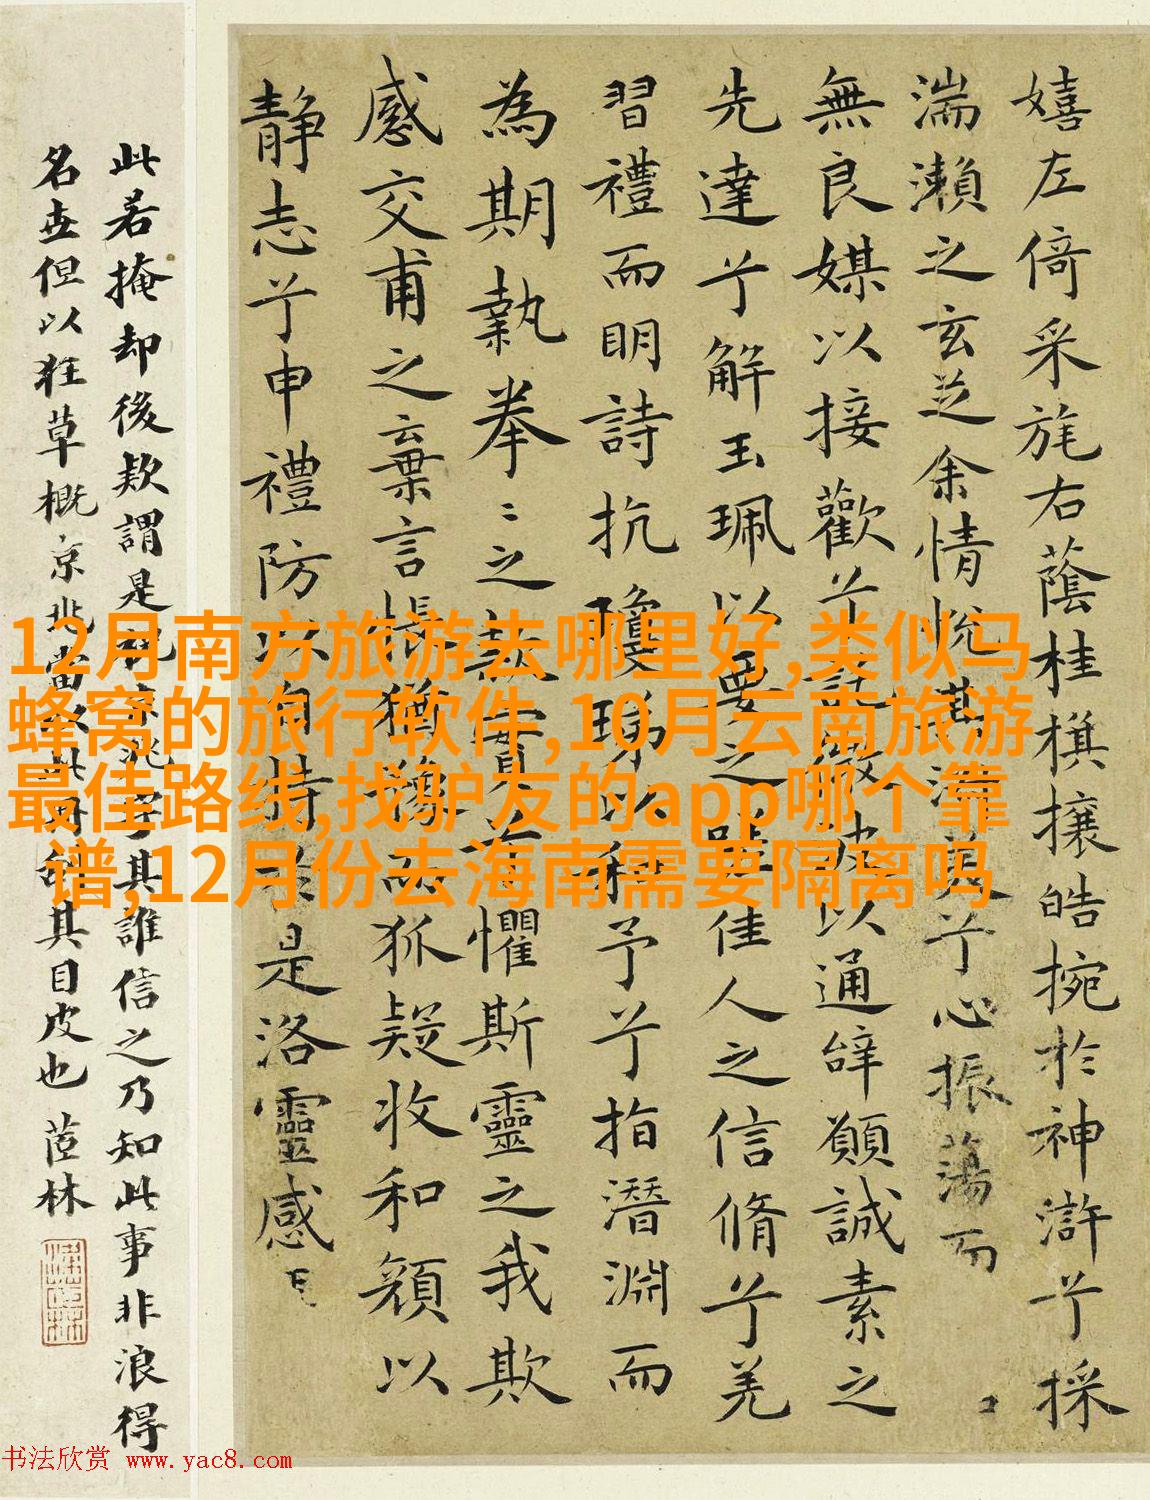 嬉左倚采旄右蔭桂棋攘皓捥於神滸兮採
湍瀨之玄芝余情悅其淑美兮心振蕩而
無良媒以接歡兮託微波以通辝願誠素之
先達兮解玉珮以要之嗟佳人之信脩兮羌
習禮而明詩抗瓊珶以和予兮指潛淵而
為期執拳〻之款實兮懼斯靈之我欺
感交甫之棄言悵猶豫而狐疑收和顏以
靜志兮申禮防以自持於是洛靈感
此若掩却後欵謂是祝京兆字其誰信之乃知此事非浪得
名世但以狂草概京兆當以此其目皮也 茝林
12月南方旅游去哪里好,类似马
蜂窝的旅行软件,10月云南旅游
最佳路线,找驴友的app哪个靠
谱,12月份去海南需要隔离吗
书法欣赏 www.yac8.com